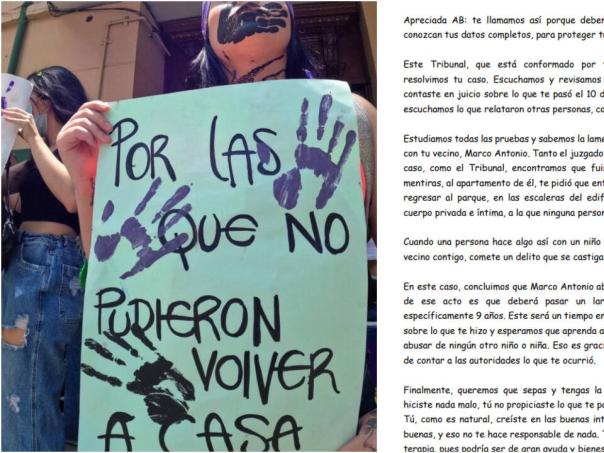 POR LAS
QUE NO
PUDIERON
VOLVER
A CASA
Apreciada AB: te llamamos así porque deber
conozcan tus datos completos, para proteger tu
Este Tribunal, que está conformado por
resolvimos tu caso. Escuchamos y revisamos
contaste en juicio sobre lo que te pasó el 10 d
escuchamos lo que relataron otras personas, co
Estudiamos todas las pruebas y sabemos la lame
con tu vecino, Marco Antonio. Tanto el juzgado
caso, como el Tribunal, encontramos que fuis
mentiras, al apartamento de él, te pidió que ent
regresar al parque, en las escaleras del edif
cuerpo privada e íntima, a la que ninguna person
Cuando una persona hace algo así con un niño
vecino contigo, comete un delito que se castiga
En este caso, concluimos que Marco Antonio ab
de ese acto es que deberá pasar un lar
específicamente 9 años. Este será un tiempo en
sobre lo que te hizo y esperamos que aprenda a
abusar de ningún otro niño o niña. Eso es graci
de contar a las autoridades lo que te ocurrió.
Finalmente, queremos que sepas y tengas la
hiciste nada malo, tú no propiciaste lo que te pa
Tú, como es natural, creíste en las buenas int
buenas, y eso no te hace responsable de nada.
terapia, pues podría ser de gran ayuda y bienes